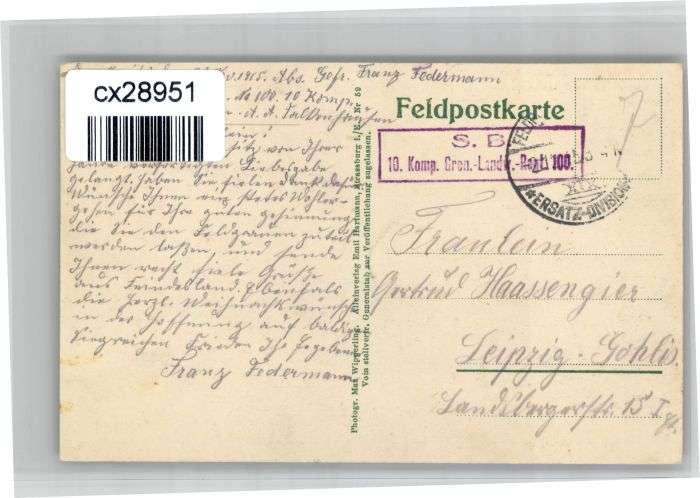 cx28951
1915. Abs. Gefr. Franz Federmann
No 100. 10 Komp.
Feldpostkarte
S. B.
10. Komp. Gren.-Landw.-Regt. 100.
FELDP
XIX
*ERSATZ-DIVISION*
7
von Ihrer
Liebesgabe
gelangt. Haben Sie vielen Dank dafür
Wünsche Ihnen
für Ihre guten Gesinnung
die Sie den Feldgrauen zuteil
werden laßen, und sende
Ihnen recht viele Grüße
aus Feindesland. Ebenfalls
die herzl. Weihnachtswünsche
in der Hoffnung auf baldigen
Siegreichen Frieden Ihr Ergebener
Franz Federmann
Photogr. Max Wipperling. Alleinverlag Emil Hartmann, Strassburg i./E. Nr 59
Vom stellvertr. Generalstab zur Veröffentlichung zugelassen.
Fräulein
Gertrud Haassengier
Leipzig-Gohlis.
Landsbergerstr. 15 I